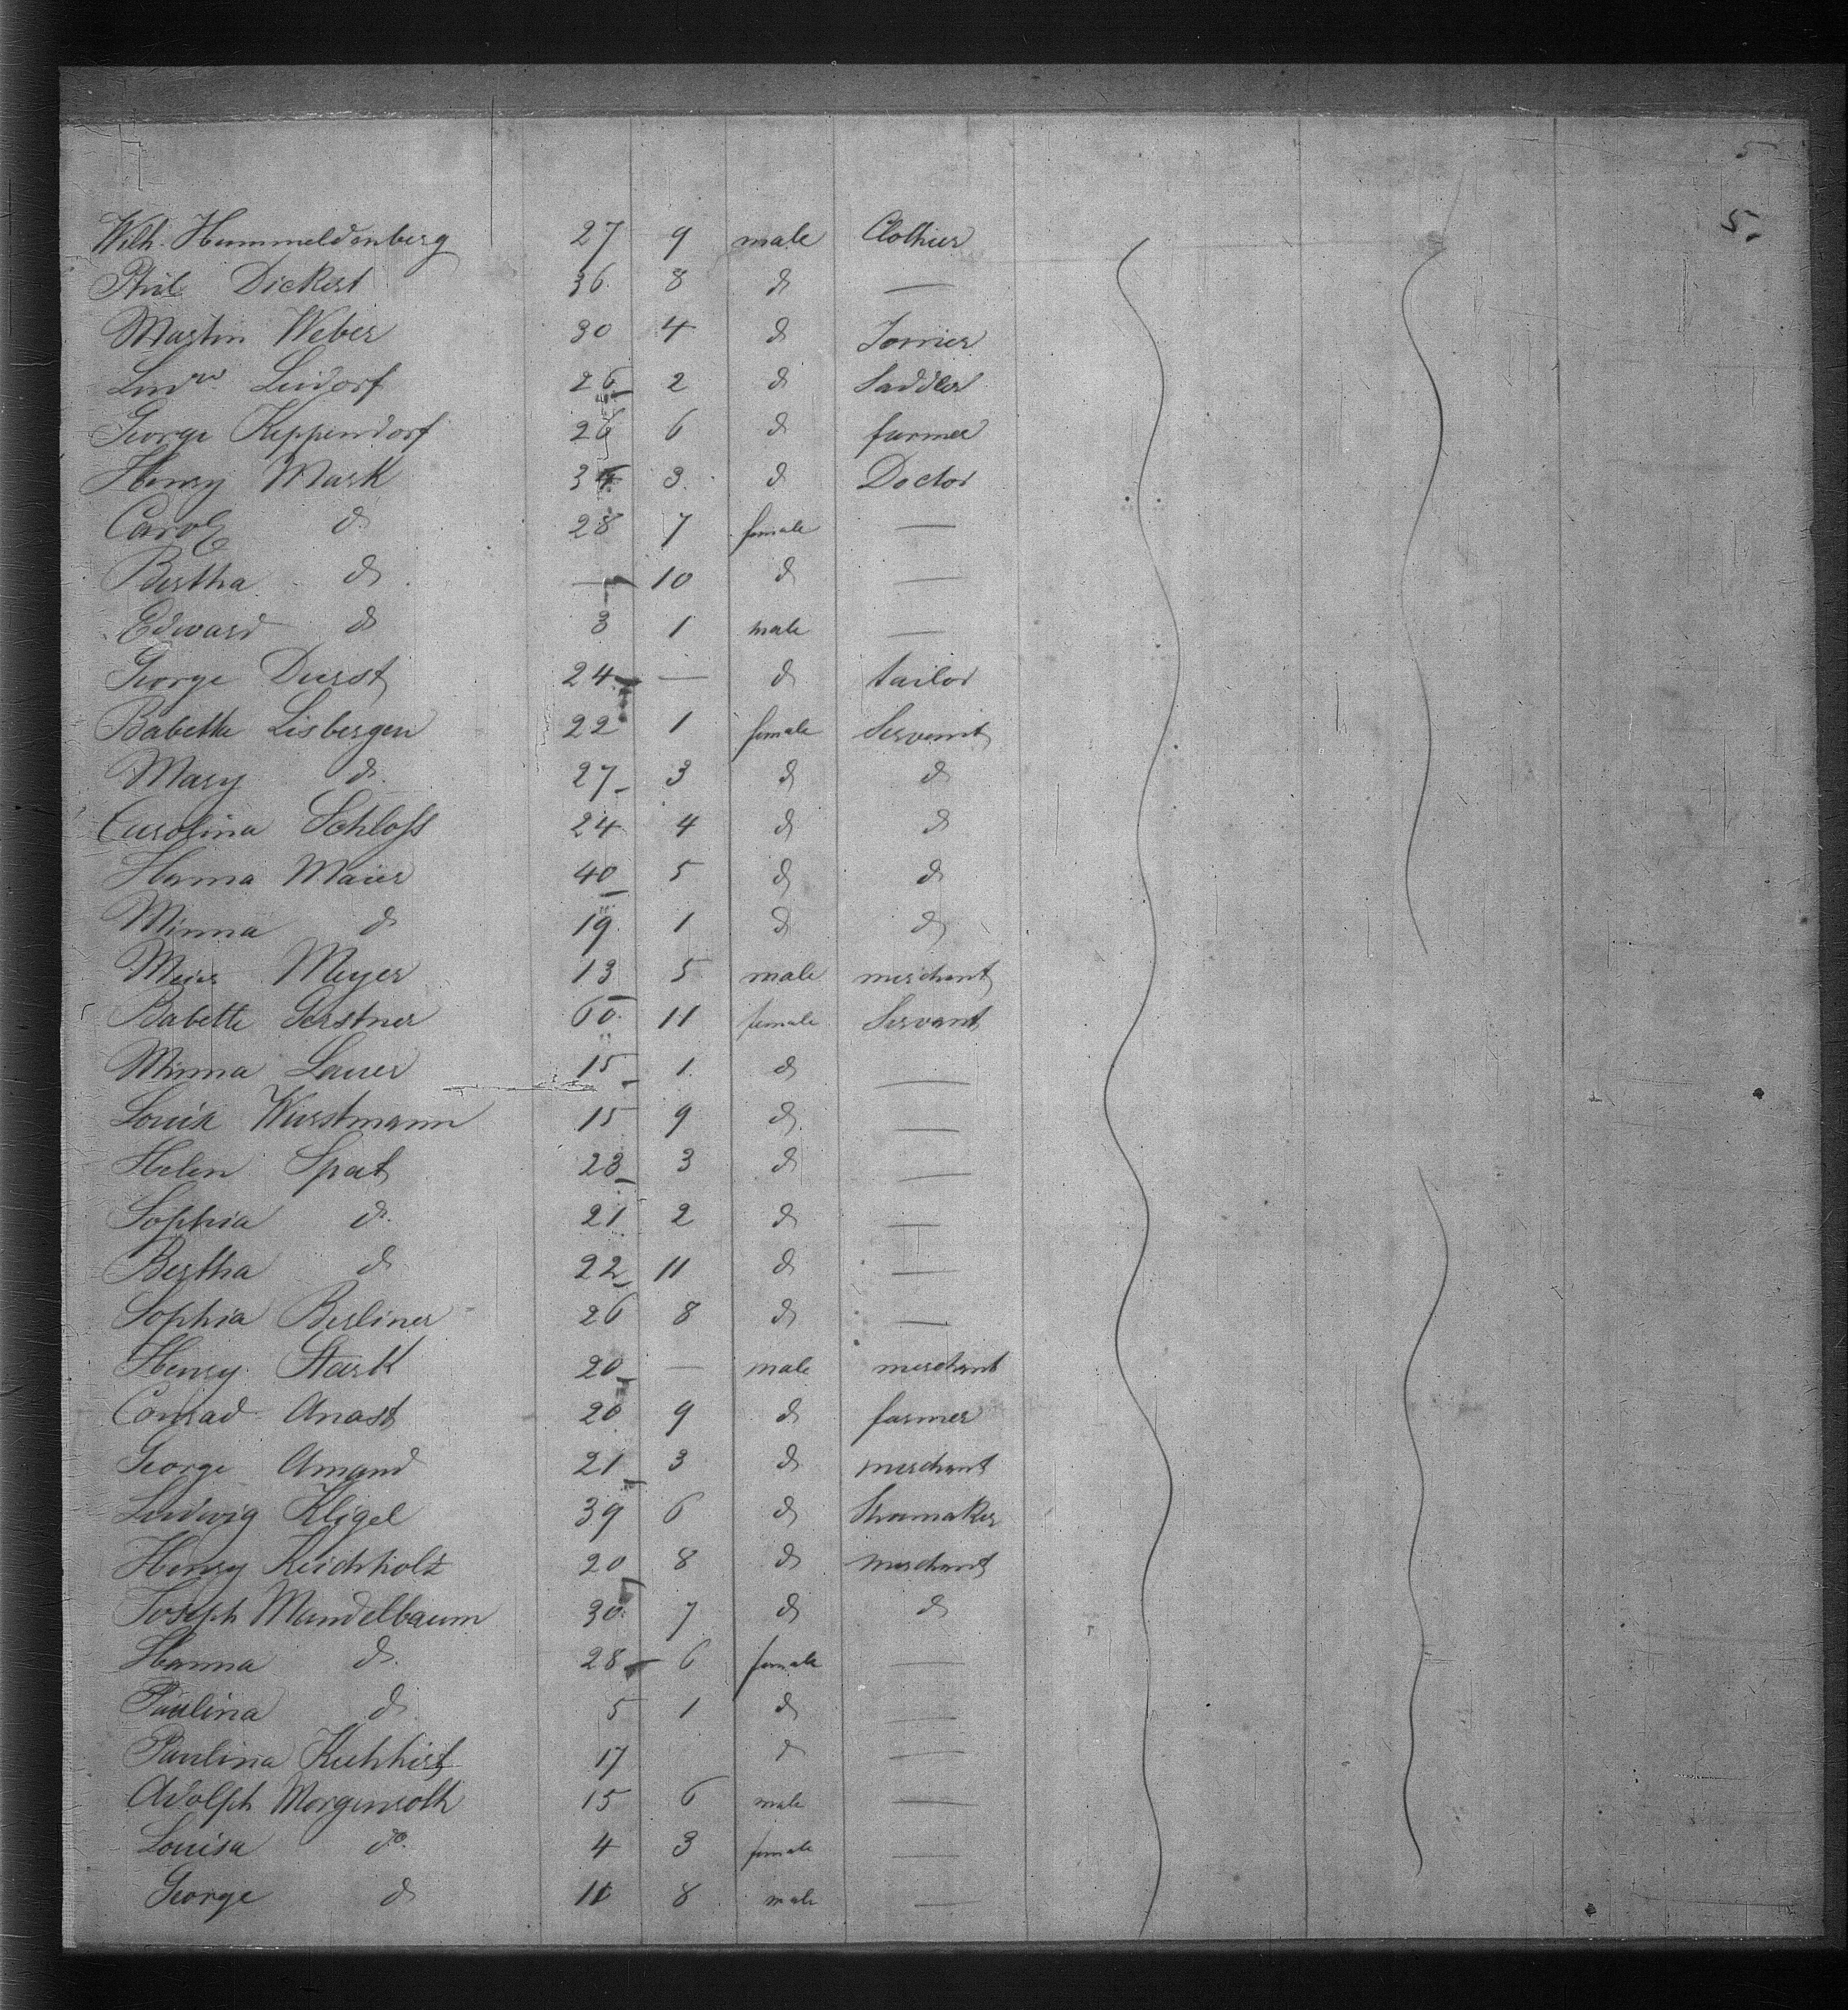 5
5.
Wilh. Hummeldenberg 27 9 male Clothier
Phil Dickert 36 8 do —
Martin Weber 30 4 do Joiner
Ludw Leidorf 26 2 do Saddler
George Keppendorf 26 6 do farmer
Henry Mark 34 3 do Doctor
Carol do 28 7 female —
Bertha do — 10 do —
Edward do 3 1 male —
George Durst 24 — do tailor
Babette Lisbergen 22 1 female Servant
Mary do 27 3 do do
Carolina Schloss 24 4 do do
Hanna Maier 40 5 do do
Minna do 19 1 do do
Meier Meyer 13 5 male merchant
Babette Gerstner 60 11 female Servant
Minna Lauer 15 1 do —
Louise Wurstmann 15 9 do —
Helen Spat 23 3 do —
Sophia do 21 2 do —
Bertha do 22 11 do —
Sophia Berliner 26 8 do —
Henry Stark 20 — male merchant
Conrad Anast 20 9 do farmer
George Amand 21 3 do merchant
Ludwig Kligel 39 6 do Shoemaker
Henry Reichholz 20 8 do merchant
Joseph Mandelbaum 30 7 do do
Hanna do 28 6 female —
Paulina do 5 1 do —
Paulina 17 do —
Adolph Morgenroth 15 6 male —
Louisa do 4 3 female —
George do 8 male —